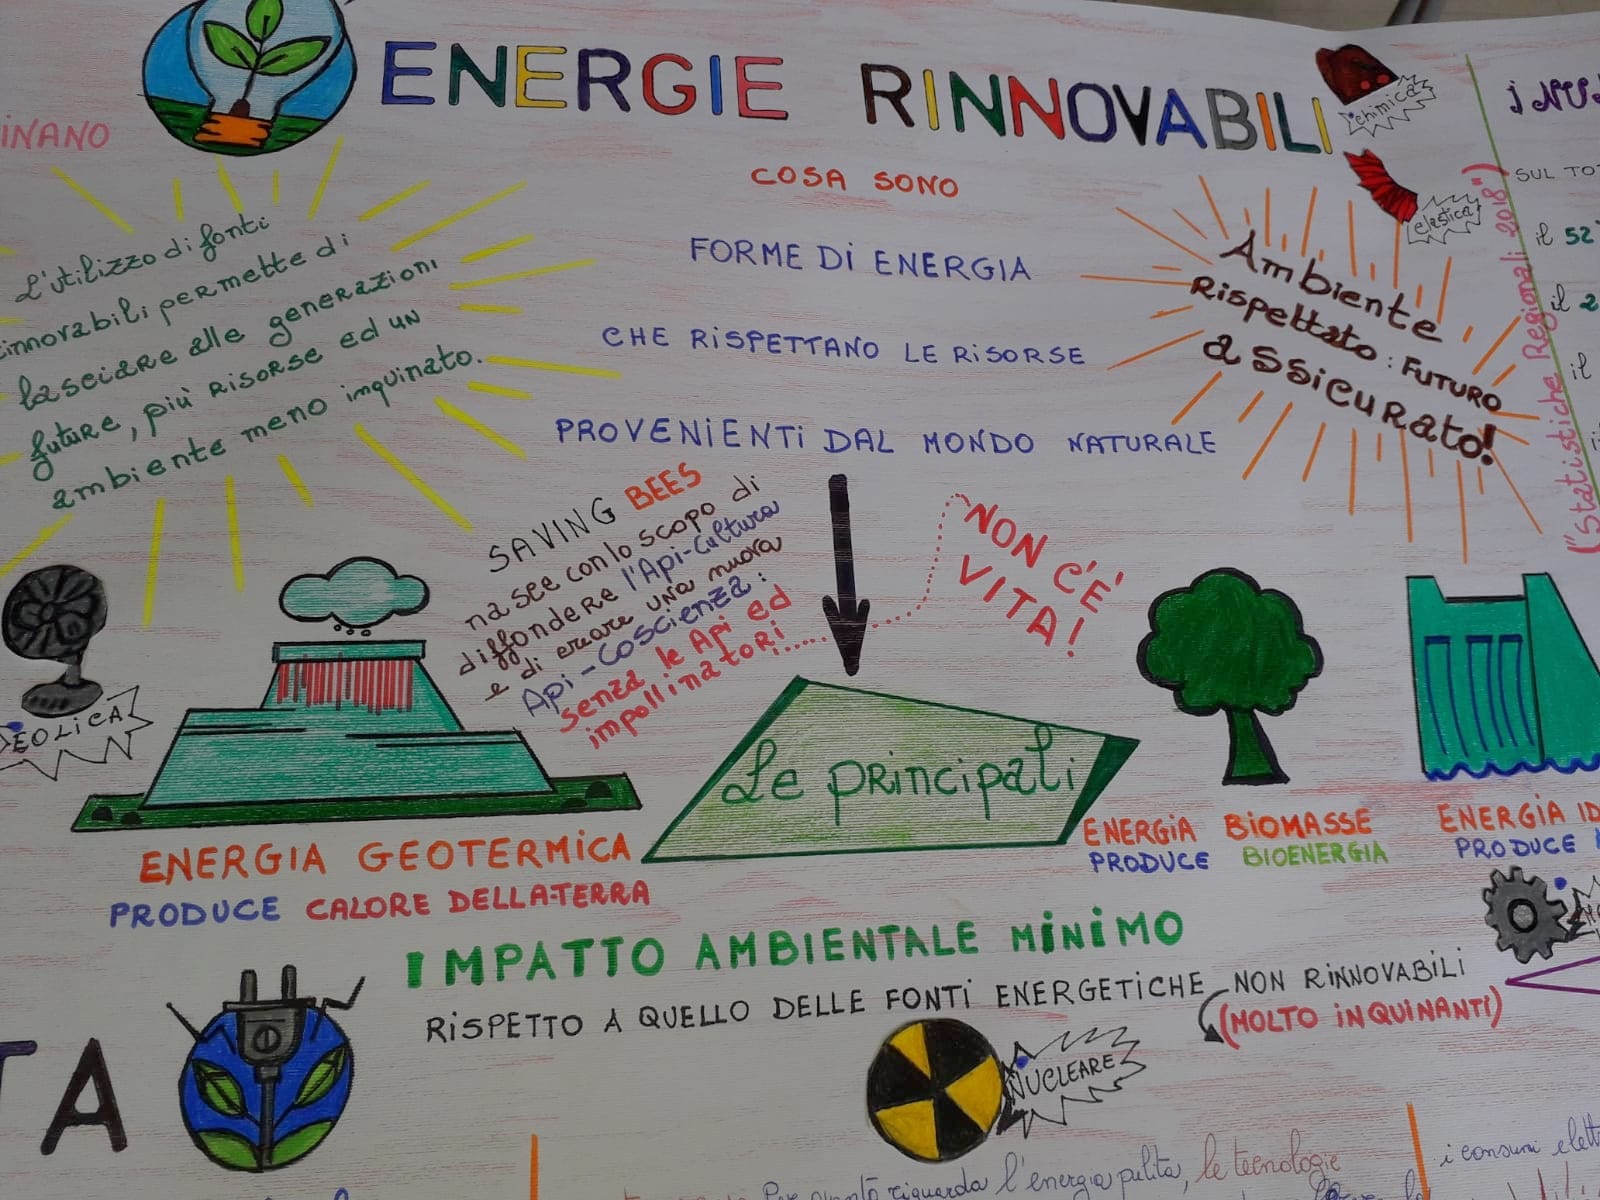 ENERGIE RINNOVABILI
chimica
elastica
COSA SONO
FORME DI ENERGIA
CHE RISPETTANO LE RISORSE
PROVENIENTI DAL MONDO NATURALE
L'utilizzo di fonti
rinnovabili permette di
lasciare alle generazioni
future, più risorse ed un
ambiente meno inquinato.
Ambiente
Rispettato: FUTURO
assicurato!
("Statistiche Regionali 2018")
SUL TOT
il 52
il 2
il
SAVING BEES
nasce con lo scopo di
diffondere l'Api-Cultura
e di creare una nuova
Api-Coscienza:
senza le Api ed
impollinatori......
NON C'È
VITA!
EOLICA
Le principali
ENERGIA GEOTERMICA
PRODUCE CALORE DELLA TERRA
ENERGIA BIOMASSE
PRODUCE BIOENERGIA
ENERGIA ID
PRODUCE
IMPATTO AMBIENTALE MINIMO
RISPETTO A QUELLO DELLE FONTI ENERGETICHE NON RINNOVABILI
(MOLTO INQUINANTI)
NUCLEARE
TA
Per quanto riguarda l'energia pulita, le tecnologie
i consumi elett